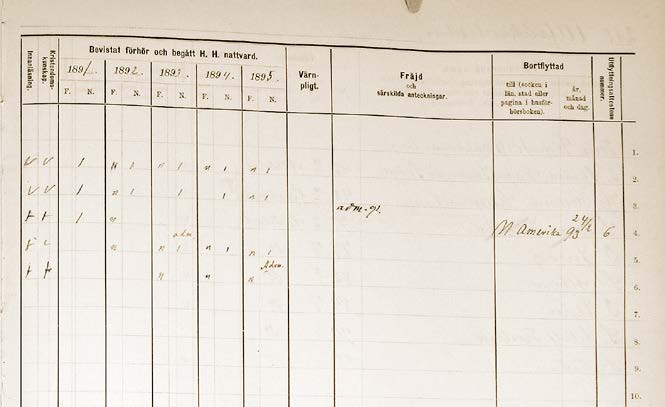 Innanläsning. Kristendoms-kunskap. Bevistat förhör och begått H. H. nattvard. Värn-pligt. Fräjd och särskilda anteckningar. Bortflyttad Utflyttningsattestens nummer.
1891 1892 1893 1894 1895
F. N. F. N. F. N. F. N. F. N.
till (socken i län, stad eller pagina i husför-hörsboken). år, månad och dag.
1.
v v 1 n 1 n 1 n 1 n 1 2.
v v 1 n 1 1 1 n 1 3.
adm. gl.
+ + 1 n N Amerika 93 24/2 6 4.
adm
n n 1 n 1 n 1 5.
Adm.
+ + n n n 6.
7.
8.
9.
10.